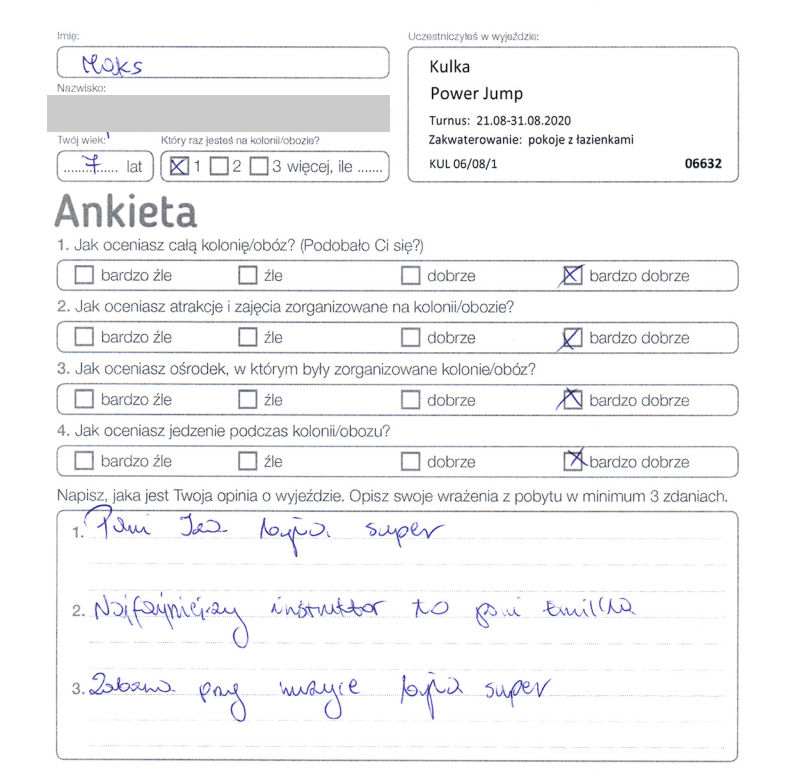 Imię:
Maks
Nazwisko:
Twój wiek:
7 lat
Który raz jesteś na kolonii/obozie?
1 2 3 więcej, ile .......
Uczestniczyłeś w wyjeździe:
Kulka
Power Jump
Turnus: 21.08-31.08.2020
Zakwaterowanie: pokoje z łazienkami
KUL 06/08/1 06632
Ankieta
1. Jak oceniasz całą kolonię/obóz? (Podobało Ci się?)
bardzo źle źle dobrze bardzo dobrze
2. Jak oceniasz atrakcje i zajęcia zorganizowane na kolonii/obozie?
bardzo źle źle dobrze bardzo dobrze
3. Jak oceniasz ośrodek, w którym były zorganizowane kolonie/obóz?
bardzo źle źle dobrze bardzo dobrze
4. Jak oceniasz jedzenie podczas kolonii/obozu?
bardzo źle źle dobrze bardzo dobrze
Napisz, jaka jest Twoja opinia o wyjeździe. Opisz swoje wrażenia z pobytu w minimum 3 zdaniach.
1. Pani Iza była super
2. Najfajniejszy instruktor to pani Emilka
3. Zabawa przy muzyce była super